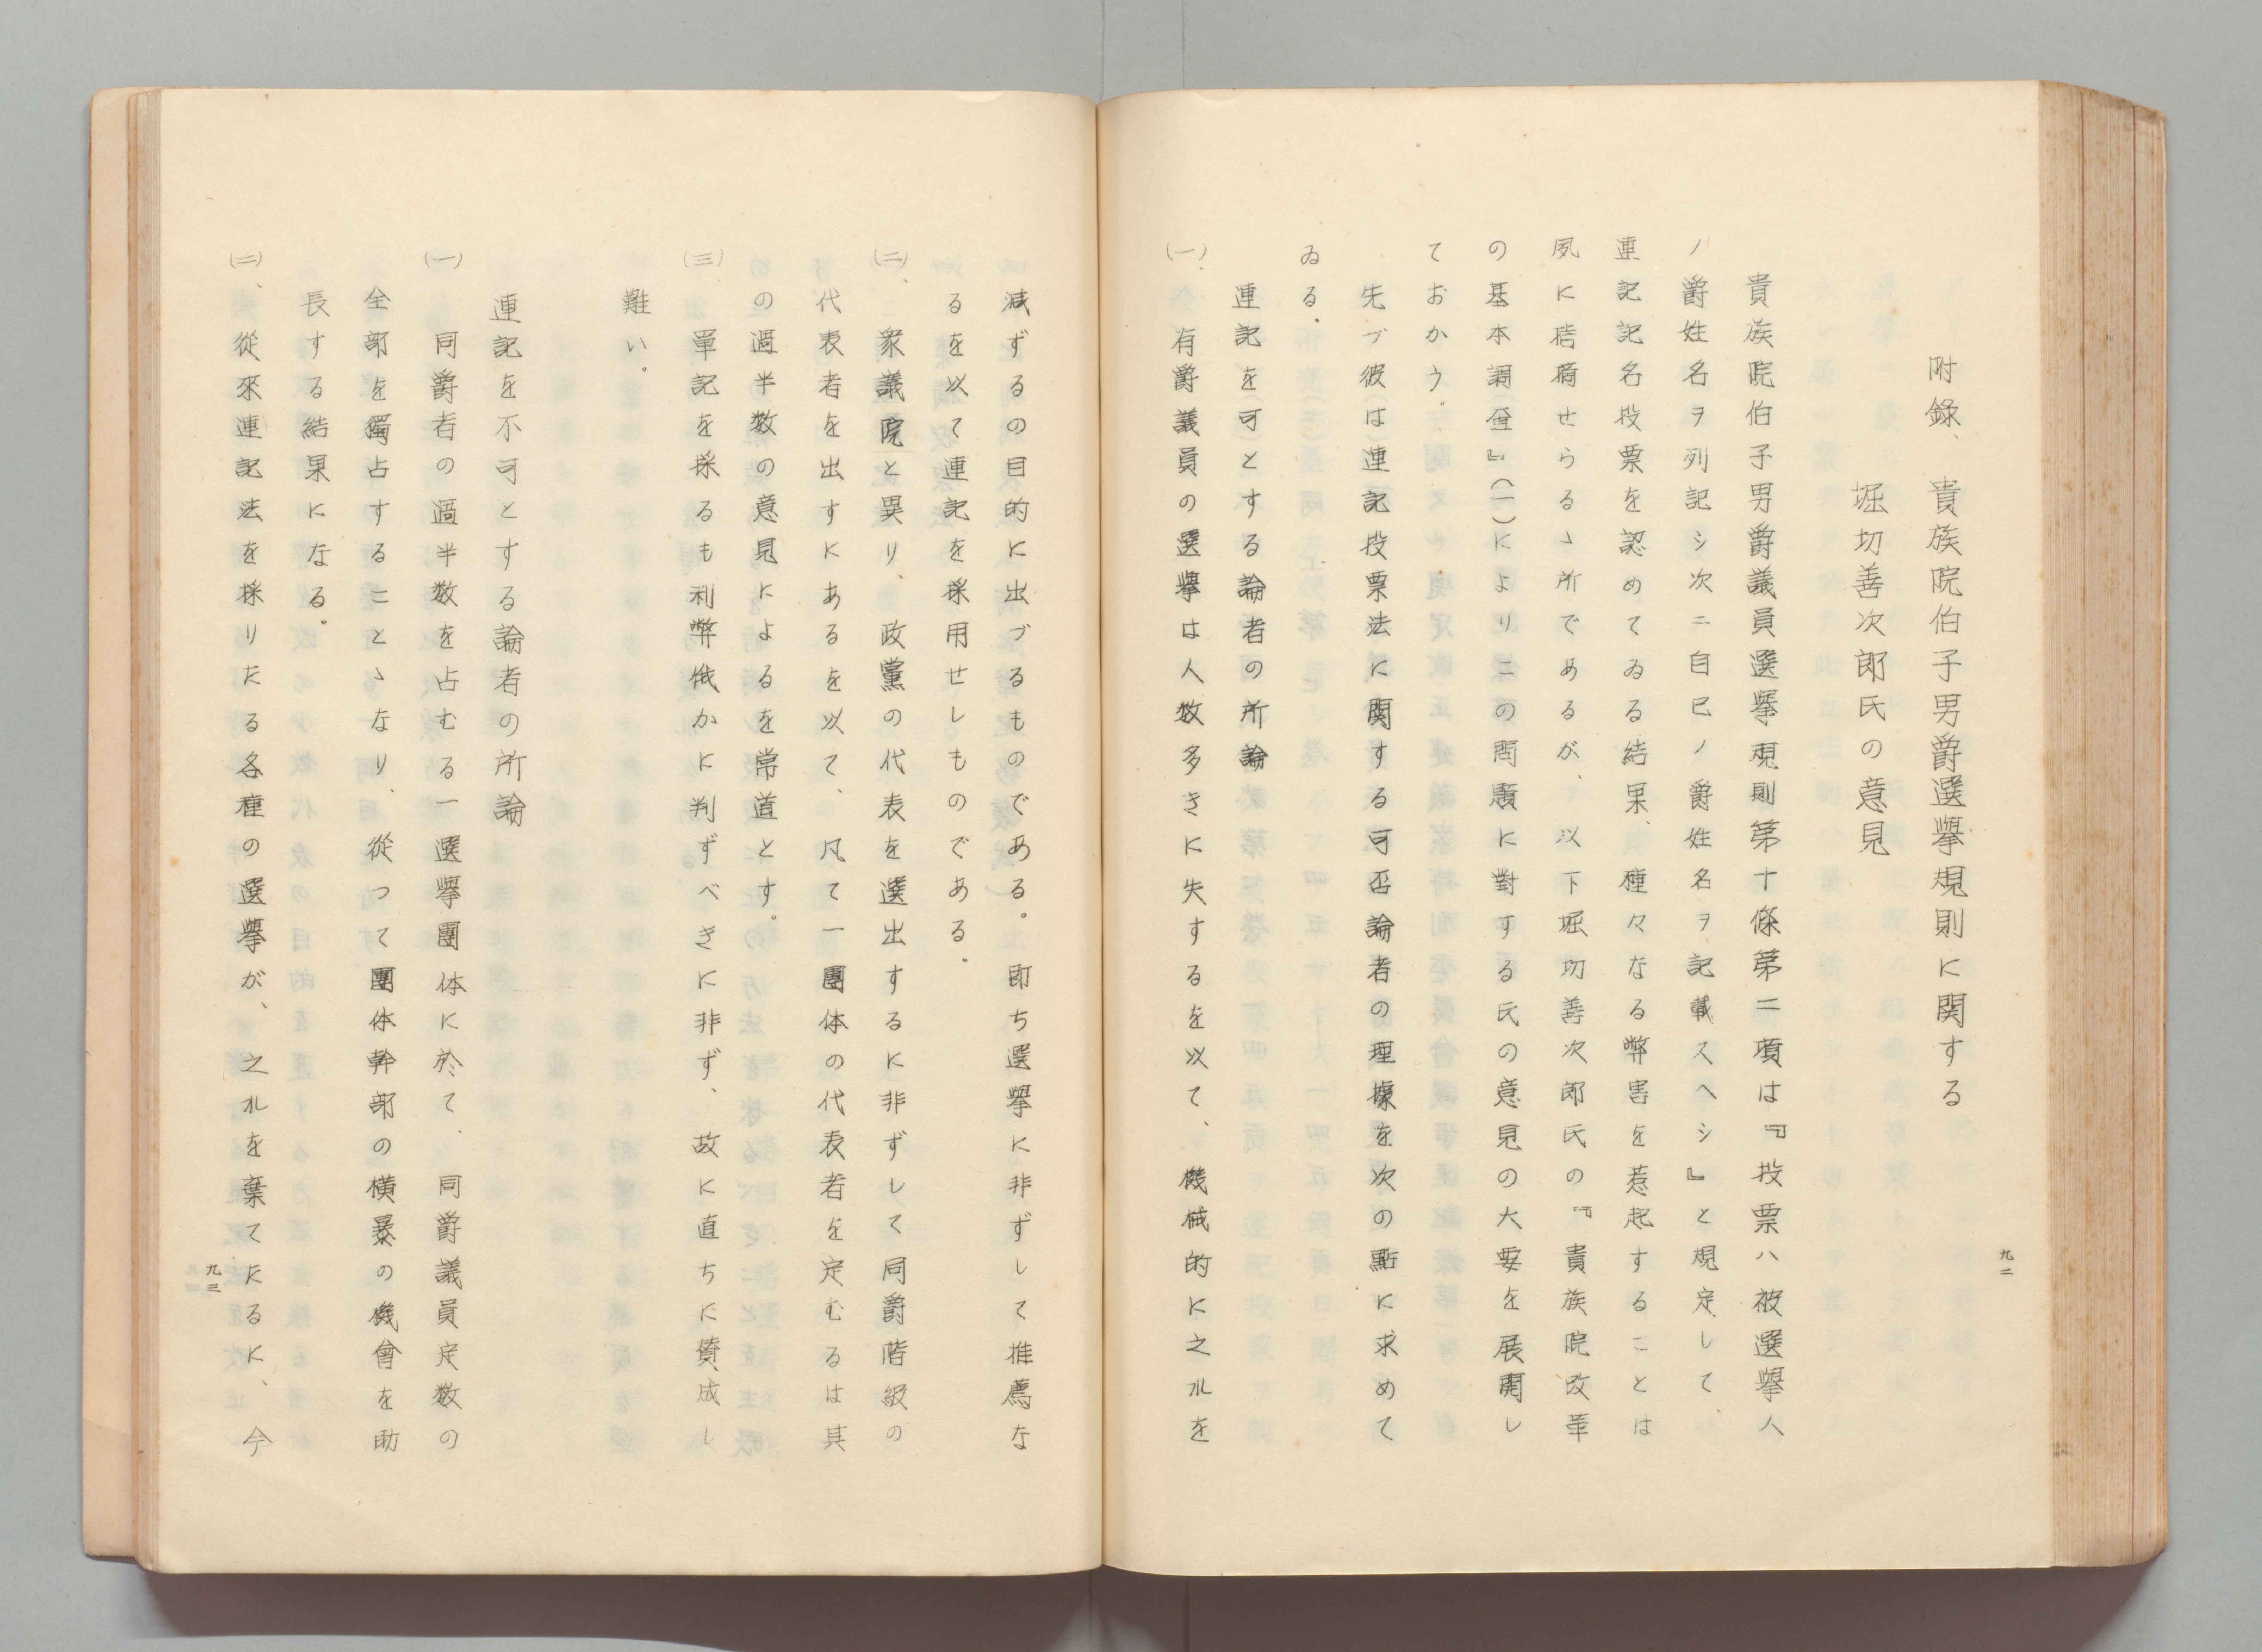 附錄、　貴族院伯子男爵選擧規則に関する
堀切善次郎氏の意見
貴族院伯子男爵議員選擧規則第十條第二項は『投票ハ被選擧人
ノ爵姓名ヲ列記シ次ニ自己ノ爵姓名ヲ記載スヘシ』と規定して、
連記記名投票を認めてゐる結果、種々なる弊害を惹起することは
夙に指摘せらるゝ所であるが、以下堀切善次郎氏の『貴族院改革
の基本調査』(一)によりこの問題に對する氏の意見の大要を展開し
ておかう。
先づ彼は連記投票法に関する可否論者の理據を次の點に求めて
ゐる．
連記を可とする論者の所論
(一)、有爵議員の選擧は人数多きに失するを以て、機械的に之れを
九二
減ずるの目的に出づるものである。即ち選擧に非ずして推薦な
るを以て連記を採用せしものである．
(二)、衆議院と異り、政黨の代表を選出するに非ずして同爵階級の
代表者を出すにあるを以て、凡て一團体の代表者を定むるは其
の過半数の意見によるを常道とす。
(三)、單記を採るも利弊俄かに判ずべきに非ず、故に直ちに賛成し
難い。
連記を不可とする論者の所論
(一)　同爵者の過半数を占むる一選擧團体に於て、同爵議員定数の
全部を獨占することゝなり、從つて團体幹部の横暴の機會を助
長する結果になる。
(二)、從來連記法を採りたる各種の選擧が、之れを棄てたるに、今
九三